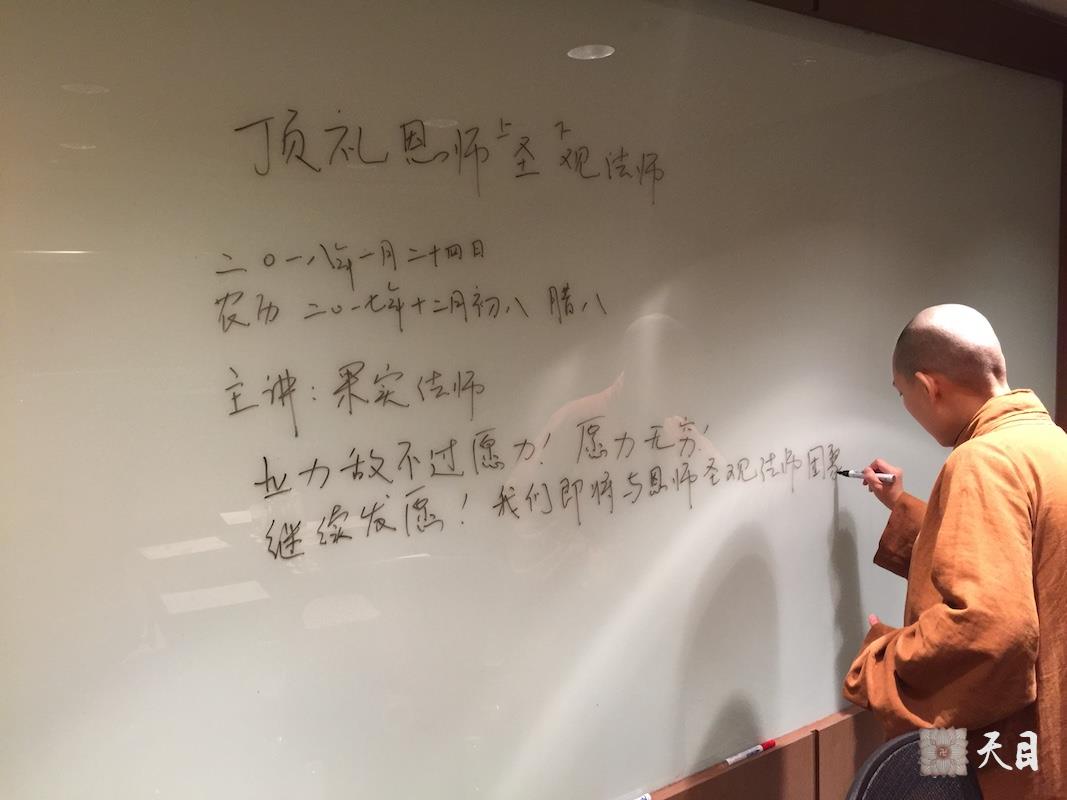 顶礼恩师上圣下观法师
二〇一八年一月二十四日
农历 二〇一七年十二月初八 腊八
主讲：果实法师
业力敌不过愿力！愿力无穷！
继续发愿！我们即将与恩师圣观法师团聚
天目